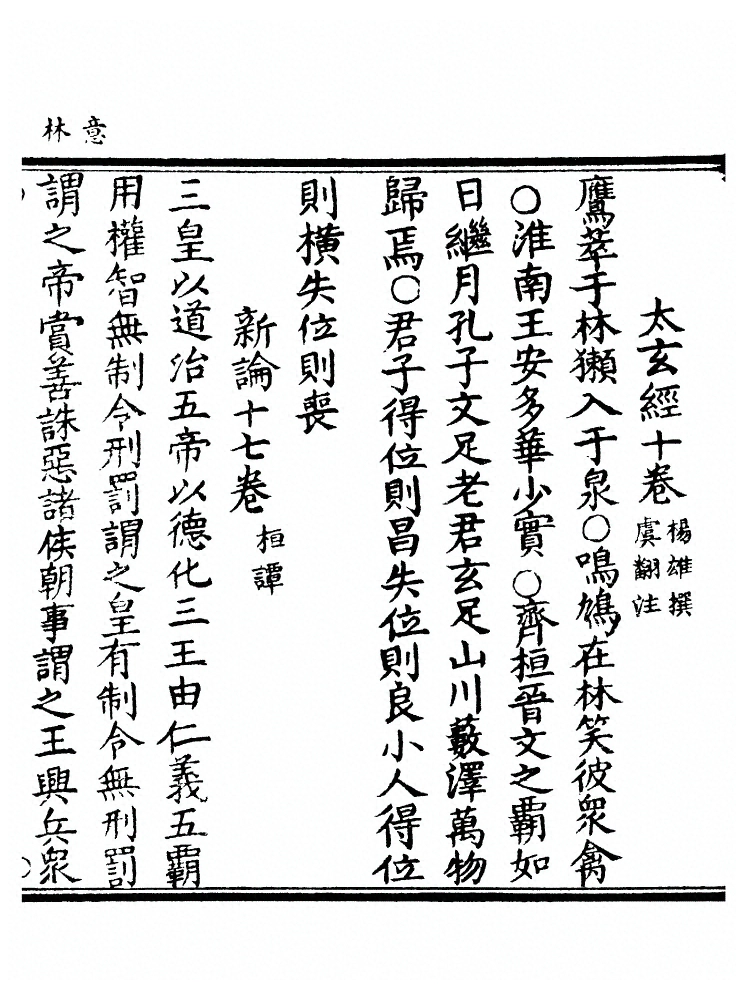 意林
太玄經十卷 楊雄撰 虞翻注
鷹萃于林獺入于泉○鳴鳩在林笑彼衆禽
○淮南王安多華少實○齊桓晉文之霸如
日繼月孔子文足老君玄足山川藪澤萬物
歸焉○君子得位則昌失位則良小人得位
則橫失位則喪
新論十七卷 桓譚
三皇以道治五帝以德化三王由仁義五霸
用權智無制令刑罰謂之皇有制令無刑罰
謂之帝賞善誅惡諸侯朝事謂之王興兵衆